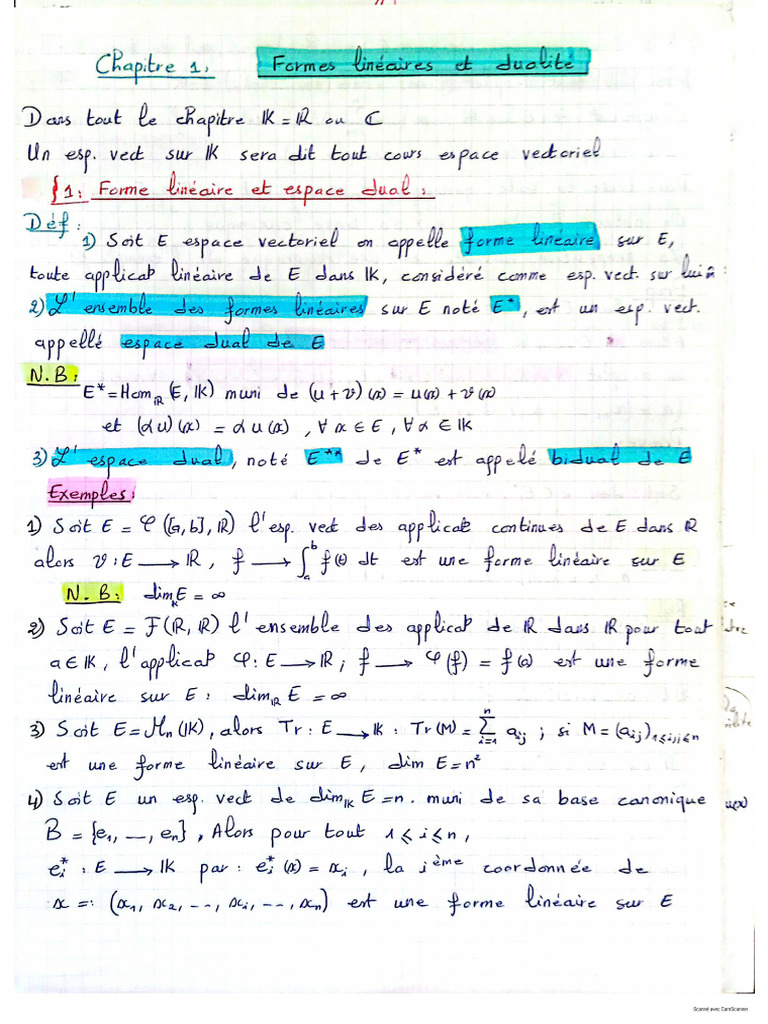 Chapitre 1: Formes linéaires et dualité
Dans tout le chapitre IK = IR ou ℂ
Un esp. vect sur IK sera dit tout cours espace vectoriel
§1: Forme linéaire et espace dual:
Déf:
1) Soit E espace vectoriel on appelle forme linéaire sur E,
toute applicat° linéaire de E dans IK, considéré comme esp. vect. sur lui m̂
2) L'ensemble des formes linéaires sur E noté E*, est un esp. vect.
appellé espace dual de E
N.B:
E* = Hom_IR(E, IK) muni de (u+v)(x) = u(x) + v(x)
et (αu)(x) = α u(x), ∀ x ∈ E, ∀ α ∈ IK
3) L'espace dual, noté E** de E* est appelé bidual de E
Exemples:
1) Soit E = 𝒞([a,b], IR) l'esp. vect des applicat° continues de E dans IR
alors v: E ⟶ IR, f ⟶ ∫_a^b f(t) dt est une forme linéaire sur E
N.B: dim_IK E = ∞
2) Soit E = F(IR, IR) l'ensemble des applicat° de IR dans IR pour tout
a ∈ IK, l'applicat° φ: E ⟶ IR; f ⟶ φ(f) = f(a) est une forme
linéaire sur E: dim_IR E = ∞
3) Soit E = M_n(IK), alors Tr: E ⟶ IK: Tr(M) = ∑_{i=1}^n a_ij; si M = (a_ij)_{1≤i,j≤n}
est une forme linéaire sur E, dim E = n²
4) Soit E un esp. vect de dim_IK E = n. muni de sa base canonique
B = {e₁, —, e_n}, Alors pour tout 1 ≤ i ≤ n,
e_i*: E ⟶ IK par: e_i*(x) = x_i, la i^ème coordonnée de
x =: (x₁, x₂, --, x_i, --, x_n) est une forme linéaire sur E
u(x)
Scanné avec CamScanner